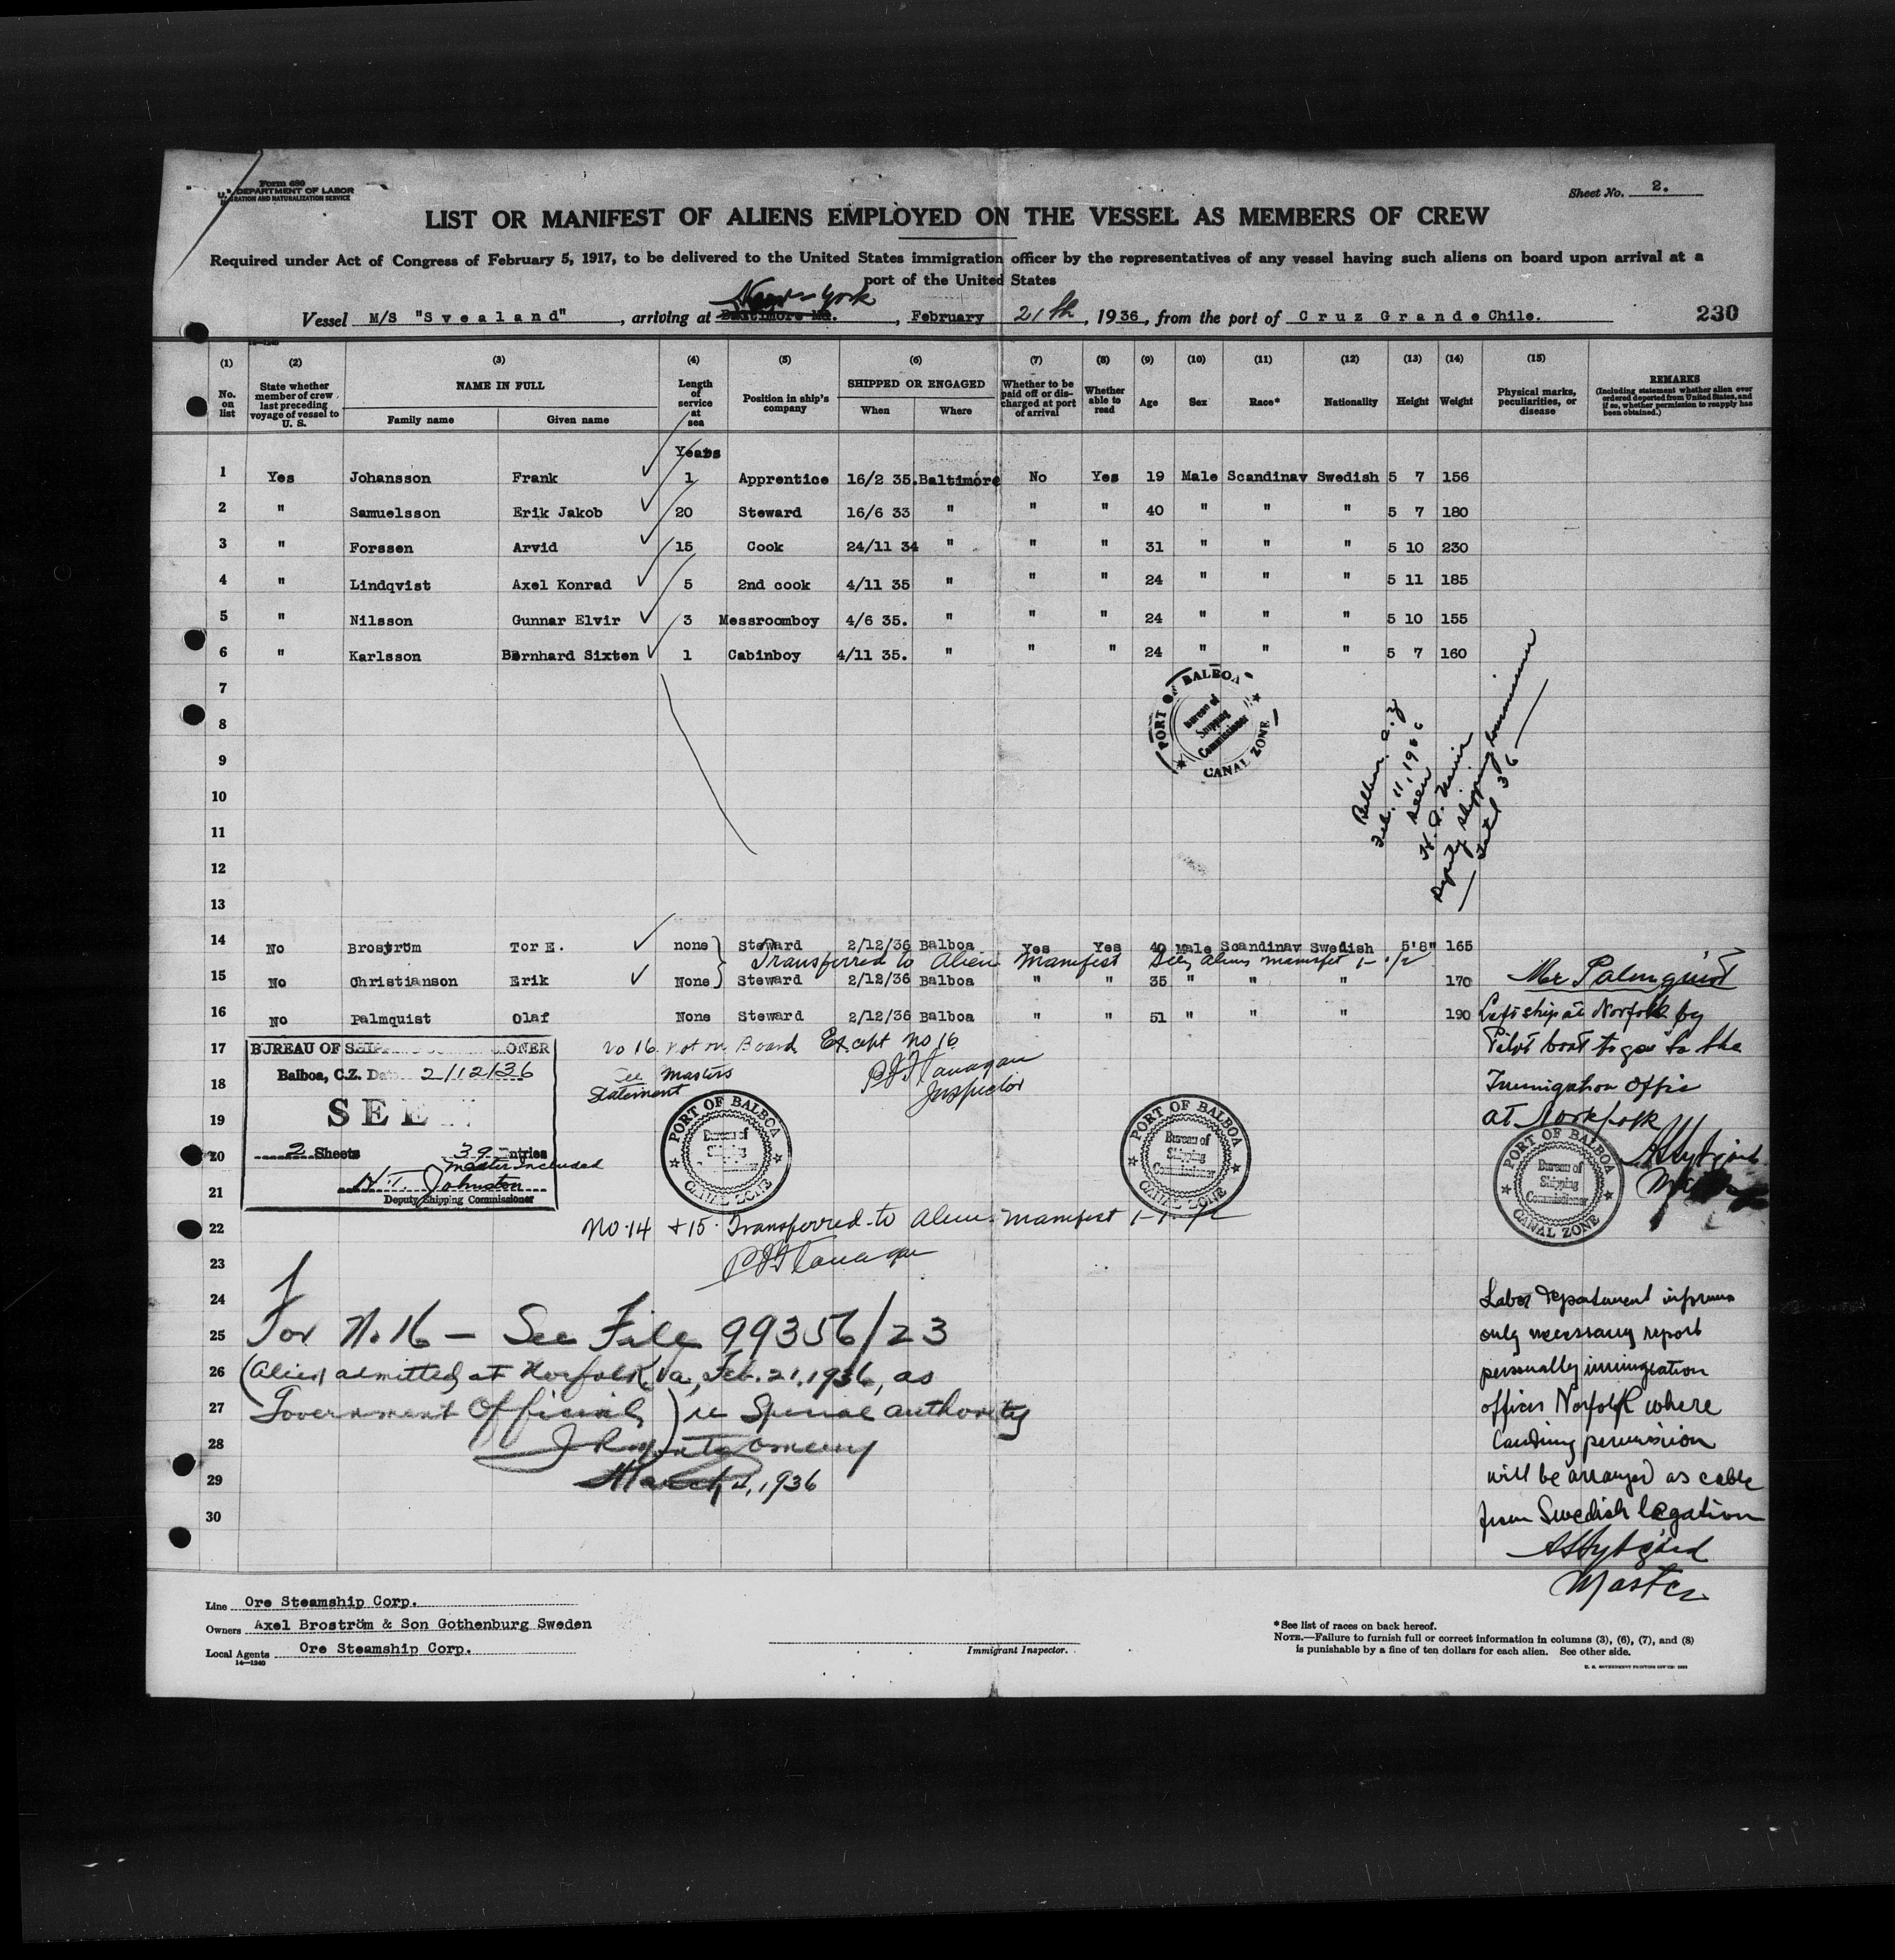 Form 680
U. S. DEPARTMENT OF LABOR
IMMIGRATION AND NATURALIZATION SERVICE
Sheet No. 2.
LIST OR MANIFEST OF ALIENS EMPLOYED ON THE VESSEL AS MEMBERS OF CREW
Required under Act of Congress of February 5, 1917, to be delivered to the United States immigration officer by the representatives of any vessel having such aliens on board upon arrival at a
port of the United States
New-York
Vessel M/S "Svealand", arriving at Baltimore Md., February 21th, 1936, from the port of Cruz Grande Chile. 230
14—1240
(1) (2) (3) (4) (5) (6) (7) (8) (9) (10) (11) (12) (13) (14) (15)
No. on list
State whether member of crew last preceding voyage of vessel to U. S.
NAME IN FULL
Family name Given name
Length of service at sea
Position in ship's company
SHIPPED OR ENGAGED
When Where
Whether to be paid off or discharged at port of arrival
Whether able to read
Age Sex Race* Nationality Height Weight
Physical marks, peculiarities, or disease
REMARKS
(Including statement whether alien ever ordered deported from United States, and if so, whether permission to reapply has been obtained.)
Years
1 Yes Johansson Frank 1 Apprentice 16/2 35. Baltimore No Yes 19 Male Scandinav Swedish 5 7 156
2 " Samuelsson Erik Jakob 20 Steward 16/6 33 " " " 40 " " " 5 7 180
3 " Forssen Arvid 15 Cook 24/11 34 " " " 31 " " " 5 10 230
4 " Lindqvist Axel Konrad 5 2nd cook 4/11 35 " " " 24 " " " 5 11 185
5 " Nilsson Gunnar Elvir 3 Messroomboy 4/6 35. " " " 24 " " " 5 10 155
6 " Karlsson Bernhard Sixten 1 Cabinboy 4/11 35. " " " 24 " " " 5 7 160
7
8
9
10
11
12
13
PORT OF BALBOA
Bureau of Shipping Commissioner
CANAL ZONE
Balboa, C.Z
Feb. 11, 1936
Seen
Deputy Shipping Commissioner
Total 36
14 No Broström Tor E. none Steward 2/12/36 Balboa Yes Yes 40 Male Scandinav Swedish 5'8" 165
Transferred to Alien Manifest See Aliens manifest 1- 1/2
15 No Christianson Erik None Steward 2/12/36 Balboa " " 35 " " " 170
16 No Palmquist Olaf None Steward 2/12/36 Balboa " " 51 " " " 190
Mr Palmquist
Left ship at Norfolk by
Pilot boat to go to the
Immigration Offic
at Norkfolk
Master
17
18
19
20
21
22
23
24
25
26
27
28
29
30
BUREAU OF SHIPPING COMMISSIONER
Balboa, C.Z. Date 2/12/36
SEEN
2 Sheets 39 Entries
master included
H. T. Johnston
Deputy Shipping Commissioner
No 16 not on Board Except No 16
See Masters
Statement
P J Flanagan
Inspector
PORT OF BALBOA
Bureau of Shipping Commissioner
CANAL ZONE
PORT OF BALBOA
Bureau of Shipping Commissioner
CANAL ZONE
PORT OF BALBOA
Bureau of Shipping Commissioner
CANAL ZONE
No. 14 + 15. Transferred to Alien Manifest 1-1/2
P J Flanagan
For N. 16 — See File 99356/23
(Alien admitted at Norfolk, Va, Feb. 21, 1936, as
Government Official) re Special authority
J R Montgomery
March 4, 1936
Labor Department informs
only necessary report
personally immigration
officer Norfolk where
landing permission
will be arranged as cable
from Swedish legation
Master
Line Ore Steamship Corp.
Owners Axel Broström & Son Gothenburg Sweden
Local Agents Ore Steamship Corp.
14—1240
Immigrant Inspector.
*See list of races on back hereof.
NOTE.—Failure to furnish full or correct information in columns (3), (6), (7), and (8)
is punishable by a fine of ten dollars for each alien. See other side.